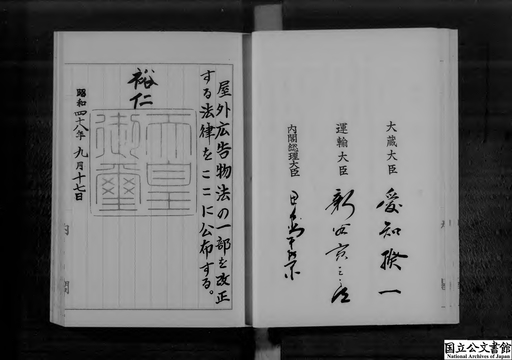 大蔵大臣 愛知揆一
運輸大臣 新谷寅三郎
内閣総理大臣 田中角榮
屋外広告物法の一部を改正
する法律をここに公布する。
裕仁
天皇
御璽
昭和四十八年九月十七日
内
閣
国立公文書館
National Archives of Japan